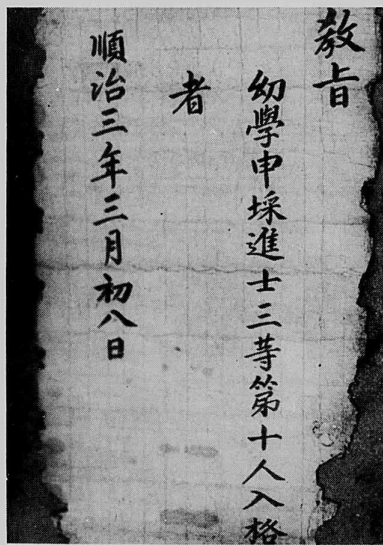 敎旨
幼學申埰進士三等第十人入格
者
順治三年三月初八日